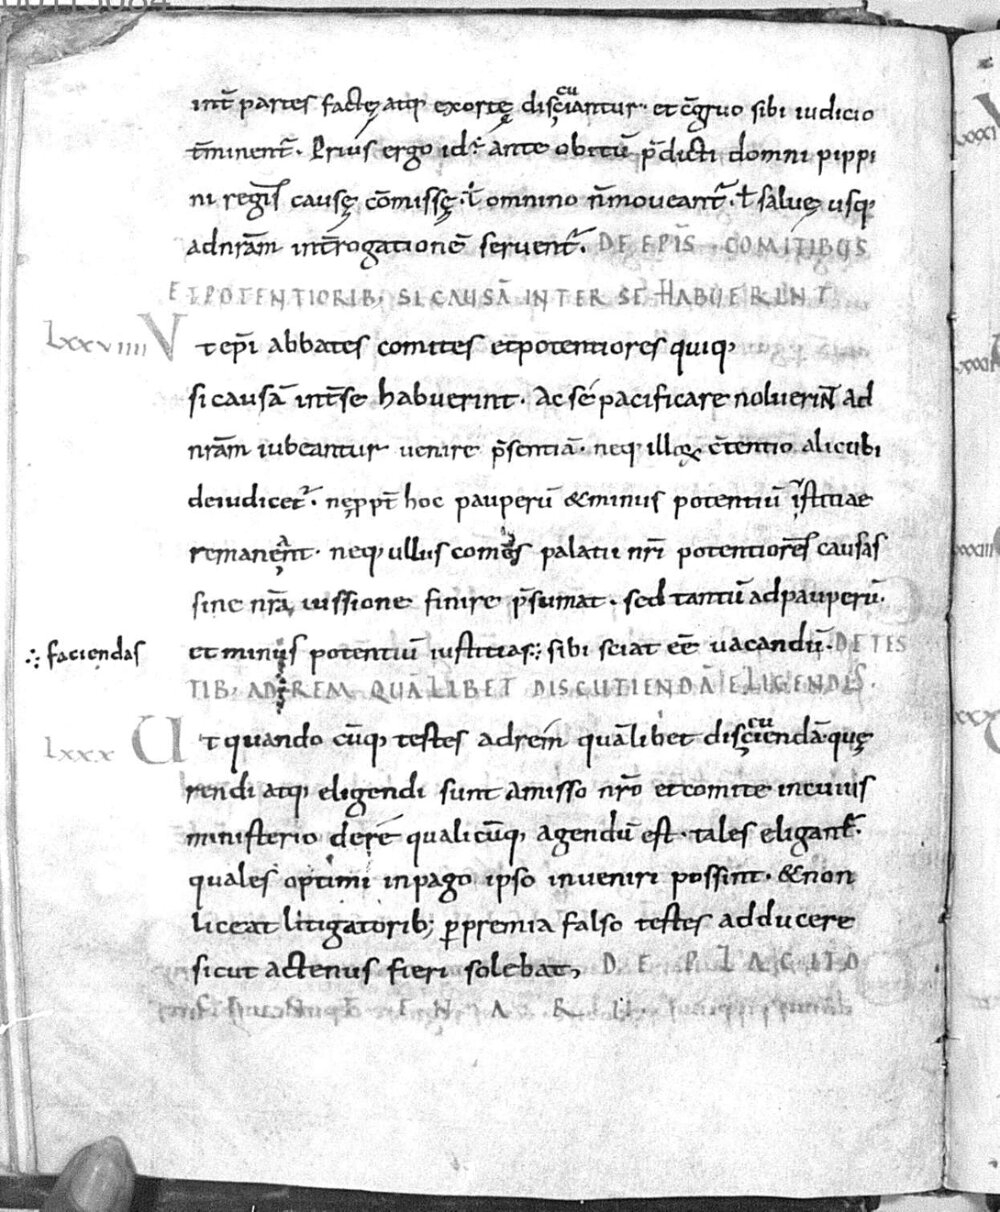 int̄ partes factę atq; exortę disc̨iantur· et c̄gruo sibi iudicio
cu
t̄minent̄. Prius ergo id ÷ ante obitū p̄dicti domni pippi
ni regis̄ causę cōmissę· ł omnino n̄ moueant̄· ł saluę usq;
ad nr̄am int̄rogationē seruent̄. DE EPĪS COMITIBUS
ET POTENTIORIB; SI CAUSĀ INTER SE HABUERINT
Lxxviiii V t ep̄i abbates comites et potentiores quiq;
si causā int̄ se habuerint· Ac sé pacificare noluerint ad
nr̄am iubeantur uenire p̄sentiā· neq; illoꝝ c̄tentio alicubi
deiudicet̄. nęp ꝓpt̄ hoc pauperū & minus potentiū iustitiae
remanęnt· neq; ullus comes palatii nr̄i potentiores̄ causas
sine nr̄a iussione finire p̄sumat· sed tantū ad pauperū·
∴ faciendas
et minus potentiū iustitias ∴ sibi sciat eē uacandū· DE TES
TIB; AD REM QUĀLIBET DISCUTIENDĀ ELIGENDIS.
Lxxx U t quando cūq; testes ad rem quālibet disciendā quę
cu
rendi atq; eligendi sunt a misso nr̄o et comite in cuius
ministerio de ré qualicūq; agendū est· tales eligant̄·
quales optimi in pago ipso inueniri possint· & non
liceat litigatorib; ꝑ premia falso testes adducere
sicut actenus fieri solebat, DE PLACITO
ENARII.